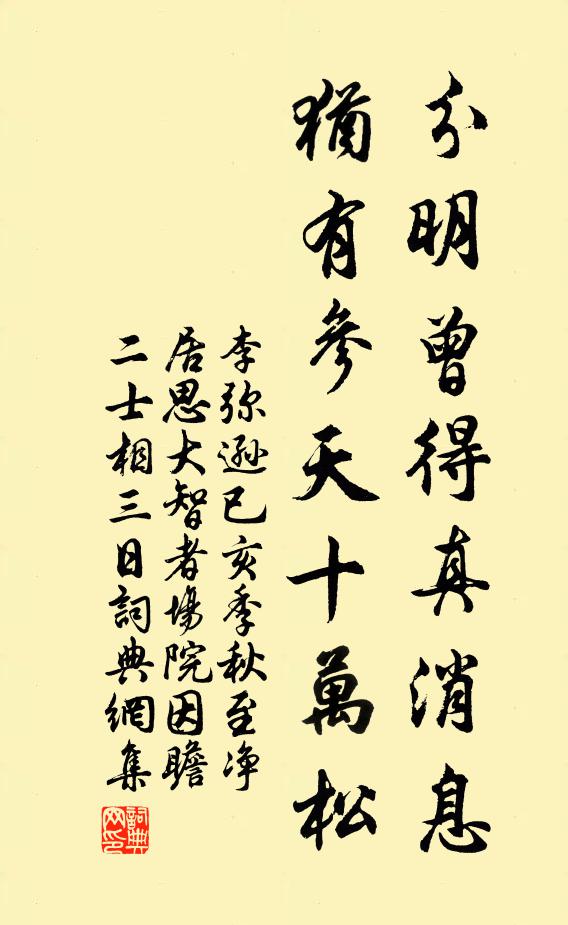 分明曾得真消息
猶有參天十萬松
李弥遜已亥季秋至净
居思大智者塲院因瞻
二士相三日詞典網集
詞典網印